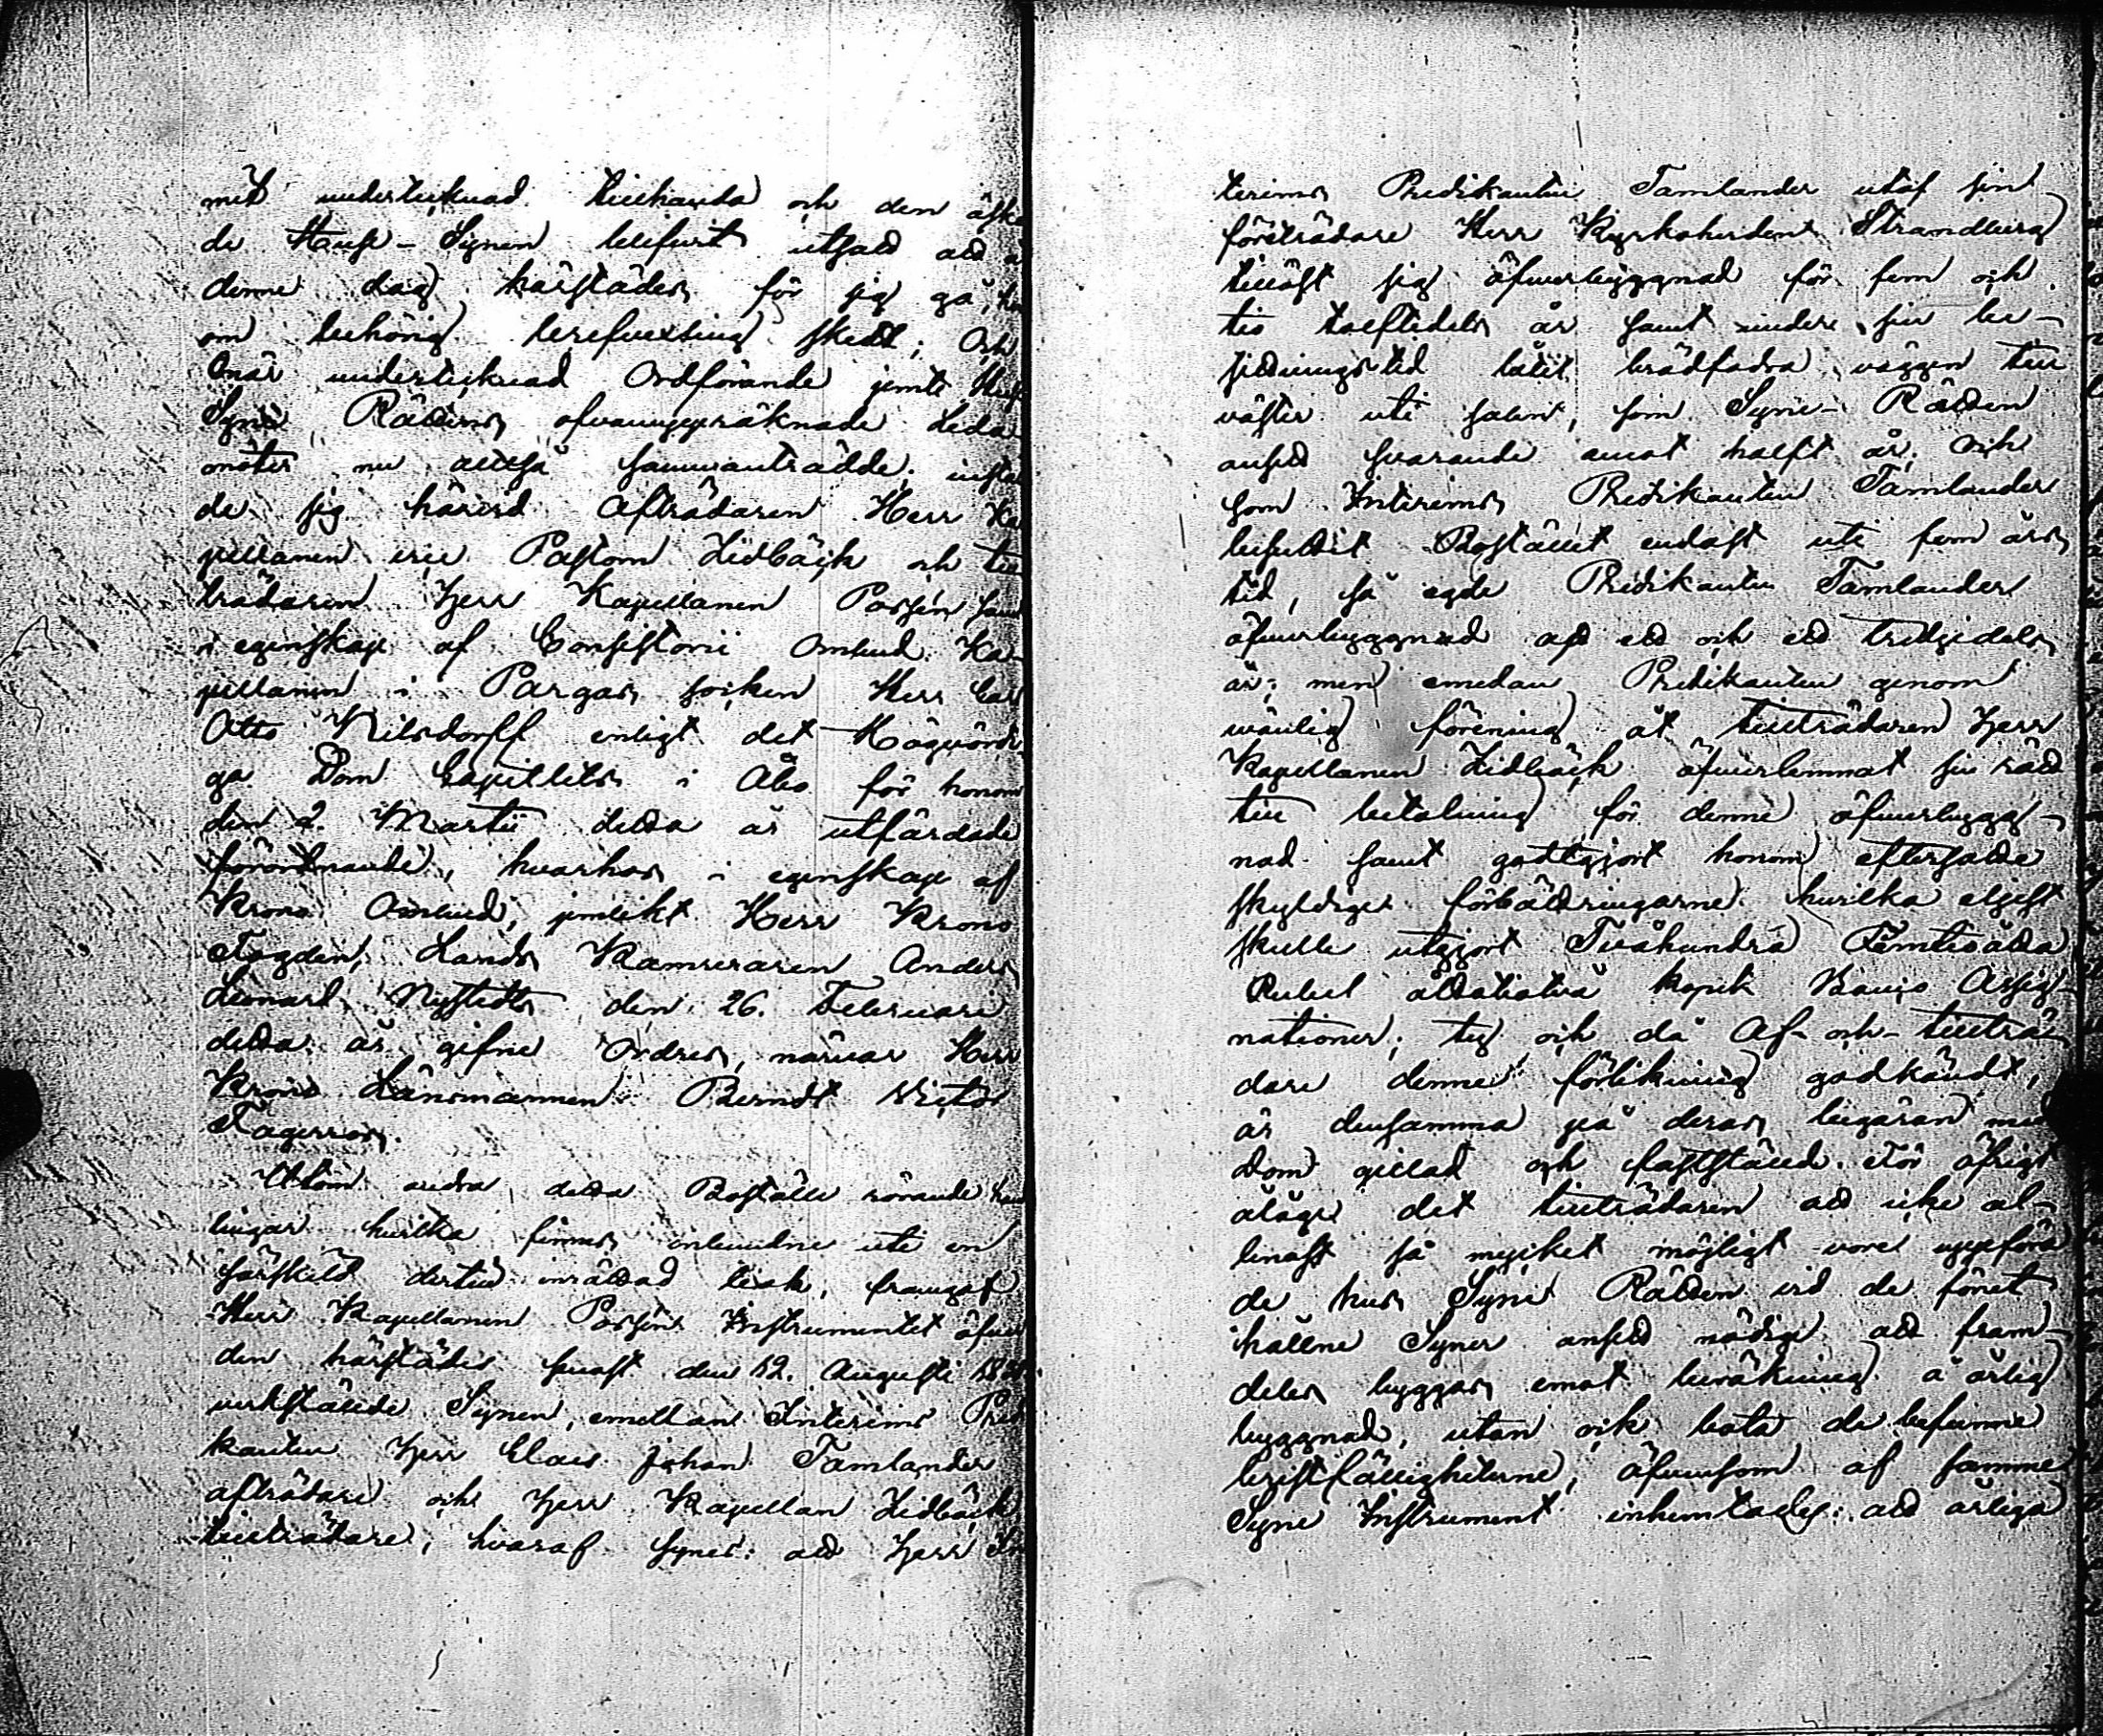 mit undertecknad tillhanda och den äske
de Huse-Synen blifvit utsatt att å
denne dag härstädes för sig gå,
om behörig berefvexling skedt; Och
När undertecknad Ordförande jemte Hus
Syne Rättens ofvanuppräknade Leda-
möter nu alltså sammanträdde, instäl
de sig härvid Afträdaren Herr Ka
pellanen vice Pastorn Lidbäck och till
trädaren Herr Kapellanen Porsén samt
i egenskap af Consistorii Ombud Ka-
pellanen i Pargas socken Herr Carl
Otto Nilsdorff enligt det Högvördi
ga Dom Capitlets i Åbo för honom
den 2. Martii detta år utfärdade
förordnande, hvarhos i egenskap af
Krono Ombud, jemlikt Herr Krono
Fogden, Lands Kamreraren Anders
Leonard Nystedts den 26. Februari
detta år gifne Ordres, närvar Herr
Krono Länsmannen Berndt Victor
Fagerroos.
Utom andra detta Boställe rörande han
lingar hvilka finnes inbundne uti en
särskild dertill inrättad bok, framgaf
Herr Kapellanen Porsén Instrumentet öfver
den härstädes senast den 12. Augusti
verkställde Synen, emellan Interims Predi
kanten Herr Claes Johan Tamlander
afträdare och Herr Kapellan Lidbäck
tillträdare, hvaraf synes: att Herr In
terims Predikanten Tamlander utaf sin
företrädare Herr Kyrkoherden Strandberg
tillöst sig öfverbyggnad för fem och
tio tolftedels år samt under sin be-
sittningstid låtit brädfodra väggen till
väster uti salen, som Syne-Rätten
ansett svarande emot halft år; Och
som Interims Predikanten Tamlander
besuttit Bostället endast uti fem års
tid, så egde Predikanten Tamlander
öfverbyggnad af ett och ett tredjedels
år; men emedan Predikanten genom
vänlig förening åt tillträdaren Herr
Kapellanen Lidbäck öfverlemnat sin rätt
till betalning för denne öfverbygg-
nad samt godtgjort honom eftersatte
skyldiga förbättringarne hvilka eljest
skulle utgjort Tvåhundra Femtioåtta
Rubel åttatiotvå kopek Banco Assig-
nationer; ty och då Af- och tillträ-
dare denne förlikning godkändt,
är densamma på deras begäran med
Dom gillad och fastställd. För öfrigt
ålåge det tillträdaren att icke al-
lenast så mycket möjligt vore uppföra
de hus Syne Rätten vid de föret
hållne Syner ansett nödige att fram-
deles byggas emot beräkning å årlig
byggnad, utan ock bota de befunne
bristfälligheterne, äfvensom af samme
Syne Instrument inhemtades: att årliga